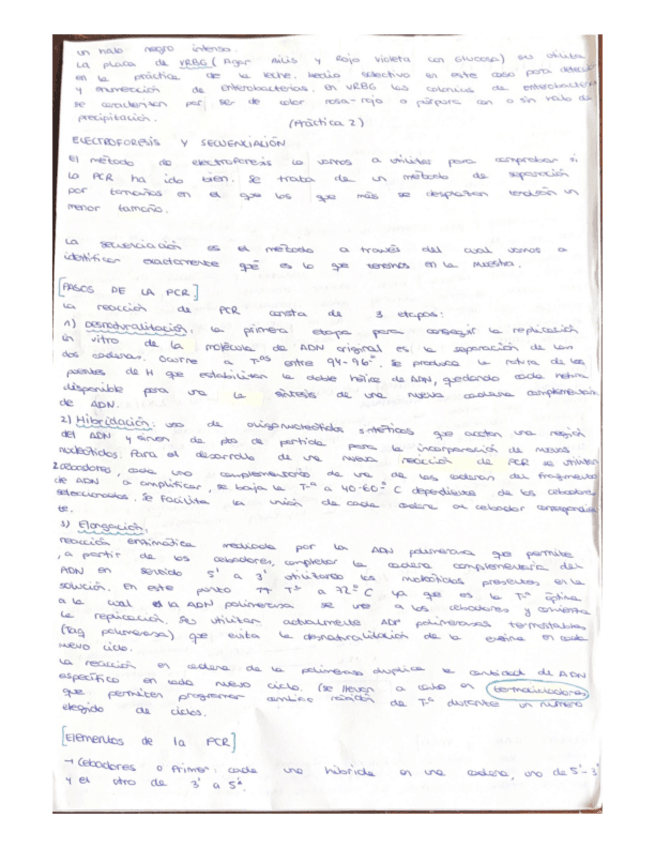 un halo negro intenso.
La placa de VRBG ( Agar Bilis y Rojo Violeta con Glucosa) se utiliza
en la práctica de la leche. Medio selectivo en este caso para detección
y enumeración de enterobacterias. en VRBG las colonias de enterobacterias
se caracterizan por ser de color rosa-rojo o púrpura con o sin halo de
precipitación. (Práctica 2)
ELECTROFORESIS Y SECUENCIACIÓN
El método de electroforesis lo vamos a utilizar para comprobar si
la PCR ha ido bien. Se trata de un método de separación
por tamaños en el que los que más se desplazan tendrán un
menor tamaño.
La secuenciación es el método a través del cual vamos a
identificar exactamente qué es lo que tenemos en la muestra.
[PASOS DE LA PCR]
La reacción de PCR consta de 3 etapas:
1) Desnaturalización: la primera etapa para conseguir la replicación
in vitro de la molécula de ADN original es la separación de las
dos cadenas. Ocurre a T.ªs entre 94-96º. Se produce la rotura de los
puentes de H que estabilizan la doble hélice de ADN, quedando cada
disponible para una la síntesis de una nueva cadena complementaria
de ADN.
2) Hibridación: uso de oligonucleótidos sintéticos que acotan una región
del ADN y sirven de pto de partida para la incorporación de nuevos
nucleótidos. Para el desarrollo de una nueva reacción de PCR se utilizan
2 cebadores, cada uno complementario de una de las cadenas del fragmento
de ADN a amplificar, se baja la Tª a 40-60ºC dependiente de los cebadores
seleccionados. Se facilita la unión de cada cadena al cebador correspondien
te.
3) Elongación:
reacción enzimática mediada por la ADN polimerasa que permite
, a partir de los cebadores, completar la cadena complementaria del
ADN en sentido 5' a 3' utilizando los nucleótidos presentes en la
solución. En este punto Tª a 72ºC ya que es la Tª óptima
a la cual la ADN polimerasa se une a los cebadores y comienza
la replicación. Se utilizan actualmente ADN polimerasas termostables
(Taq polimerasa) que evita la desnaturalización de la enzima en cada
nuevo ciclo.
La reacción en cadena de la polimerasa duplica la cantidad de ADN
específico en cada nuevo ciclo. (se llevan a cabo en termocicladores,
que permiten programar cambio de Tª durante un número
elegido de ciclos.
[Elementos de la PCR]
→ Cebadores o Primer: cada uno híbrida en una cadena, uno de 5'-3'
y el otro de 3' a 5'.